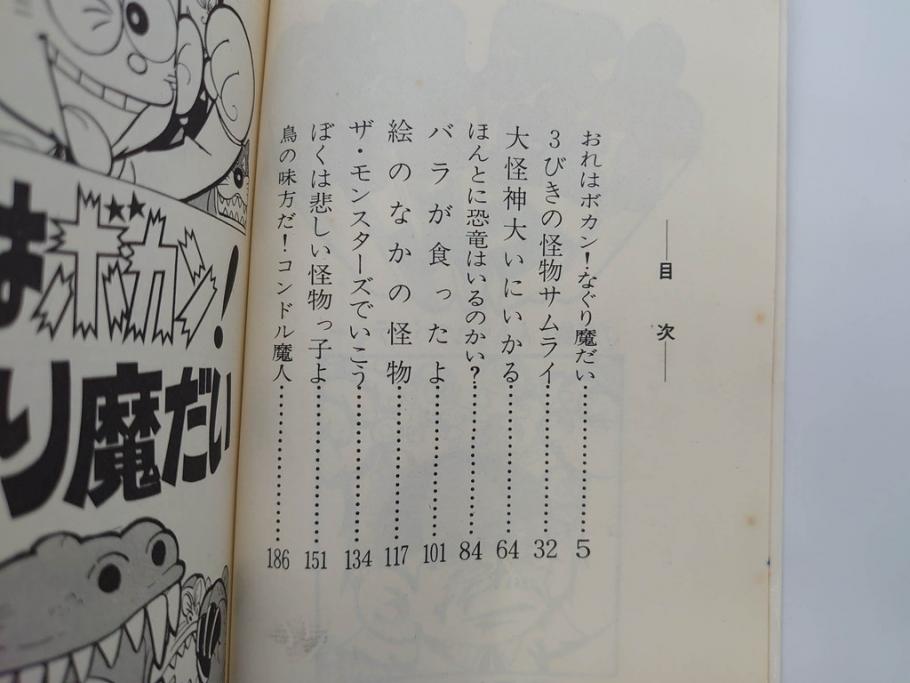 目次
おれはボカン！なぐり魔だい……………5
3びきの怪物サムライ……………32
大怪神大いにいかる……………64
ほんとに恐竜はいるのかい？……………84
バラが食ったよ……………101
絵のなかの怪物……………117
ザ・モンスターズでいこう……………134
ぼくは悲しい怪物っ子よ……………151
鳥の味方だ！コンドル魔人……………186
はボカン！
り魔だい